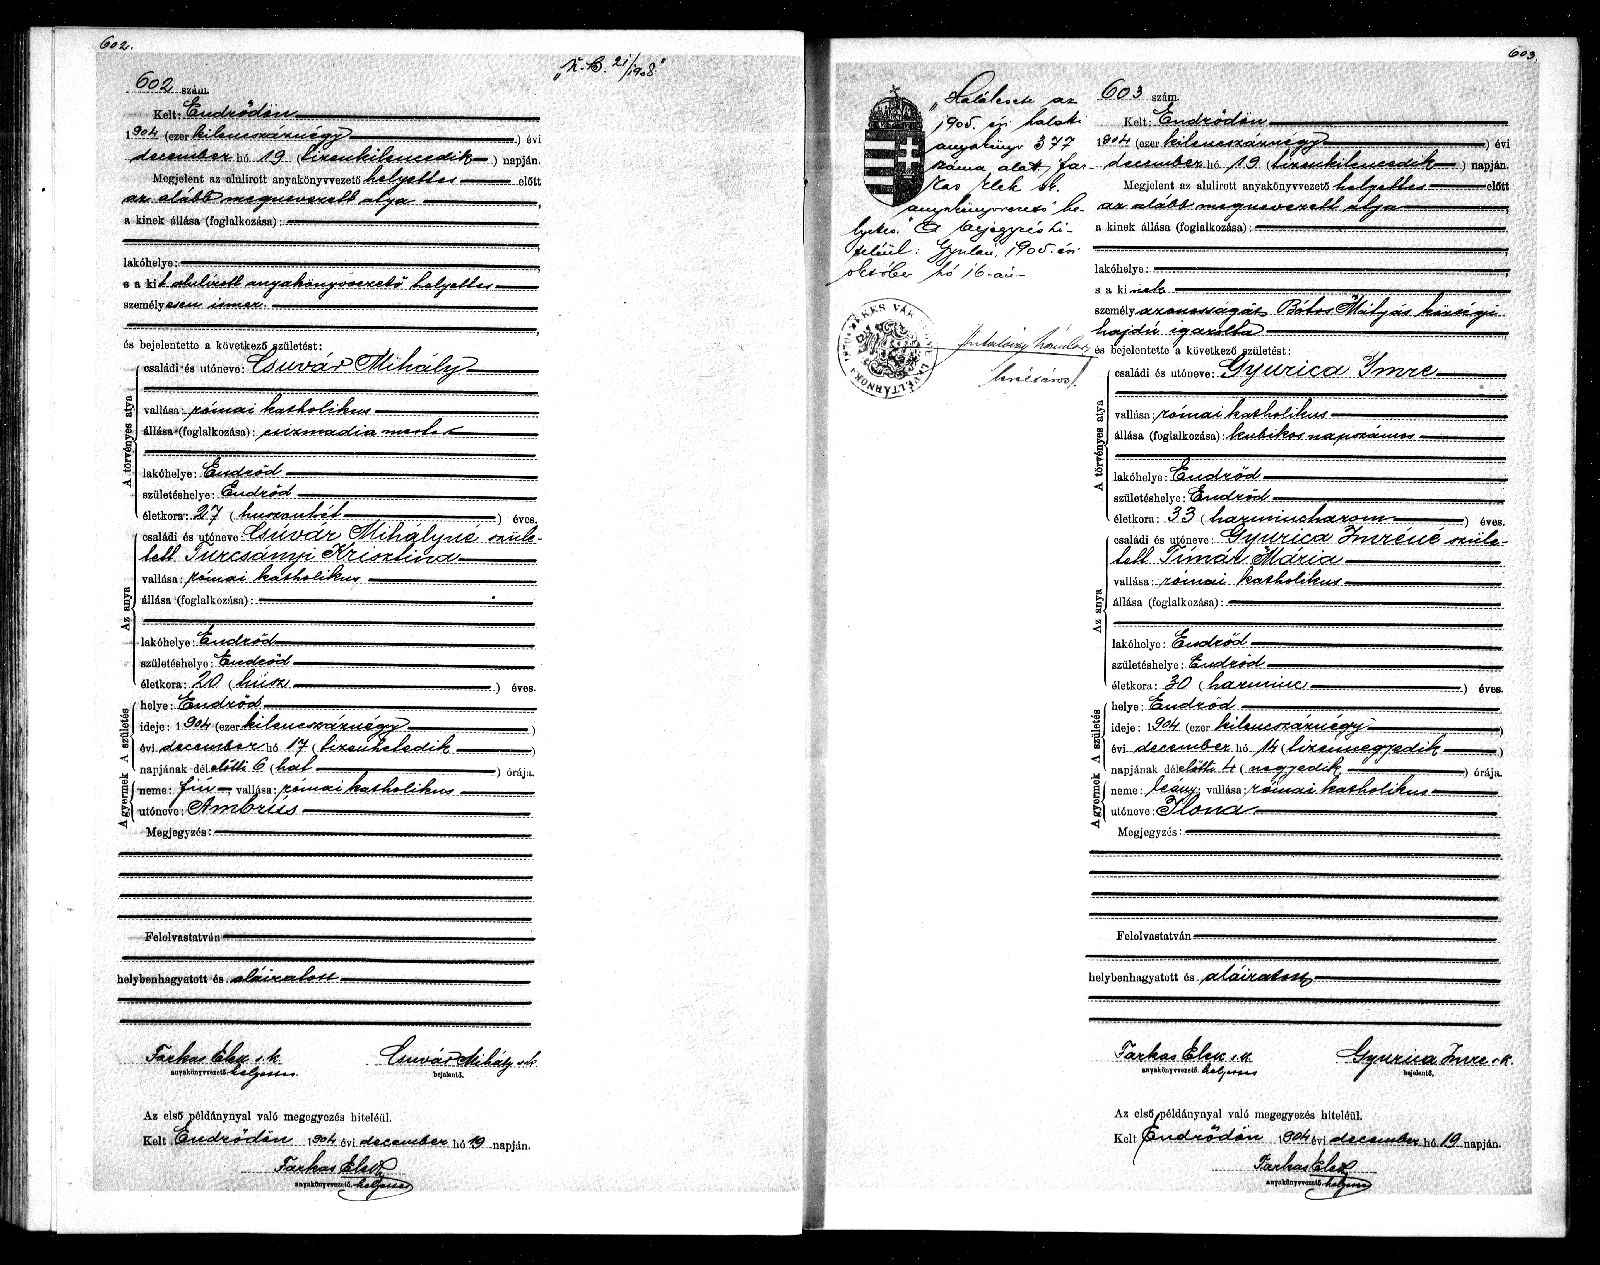 602.
602 szám.
"K. B. 21/1908"
Kelt: Endrődön
1904 (ezer kilenczszáznégy) évi
december hó 19 (tizenkilencedik) napján.
Megjelent az alulirott anyakönyvvezető helyettes előtt
az alább megnevezett atya,
a kinek állása (foglalkozása):
lakóhelye:
s a kit alulirott anyakönyvvezető helyettes
személyesen ismer.
és bejelentette a következő születést:
A törvényes atya
családi és utóneve: Csuvár Mihály
vallása: római katholikus
állása (foglalkozása): csizmadia mester
lakóhelye: Endrőd
születéshelye: Endrőd
életkora: 27 (huszonhét) éves.
Az anya
családi és utóneve: Csúvár Mihályné szüle-
tett Turcsányi Krisztina
vallása: római katholikus
állása (foglalkozása):
lakóhelye: Endrőd
születéshelye: Endrőd
életkora: 20 (húsz) éves.
A gyermek A születés
helye: Endrőd
ideje: 1904 (ezer kilenczszáznégy)
évi december hó 17 (tizenhetedik)
napjának délelőtti 6 (hat) órája.
neme: fiú, vallása: római katholikus
utóneve: Ambrús
Megjegyzés:
Felolvastatván
helybenhagyatott és aláiratott
Farkas Elek s. k. Csuvár Mihály s. k.
anyakönyvvezető. helyettes bejelentő.
Az első példánynyal való megegyezés hiteléül.
Kelt Endrődön 1904 évi december hó 19 napján.
Farkas Elek
anyakönyvvezető. helyettes
603
"Halálesete az
1905. évi halotti
anyakönyv 377
száma alatt, Far-
kas Elek sk.
anyakönyvvezető he-
lyettes. A bejegyzés hi-
teléül: Gyulán, 1905. évi
október hó 16-án
BÉKÉS VÁRMEGYE LEVÉLTÁRNOKA
603 szám.
Kelt: Endrődön
1904 (ezer kilenczszáznégy) évi
december hó 19 (tizenkilencedik) napján.
Megjelent az alulirott anyakönyvvezető helyettes előtt
az alább megnevezett atya
a kinek állása (foglalkozása):
lakóhelye:
s a kinek
személyazonosságát Bótos Mátyás községi
hajdú igazolta
és bejelentette a következő születést:
A törvényes atya
családi és utóneve: Gyurica Imre
vallása: római katholikus
állása (foglalkozása): kubikos napszámos
lakóhelye: Endrőd
születéshelye: Endrőd
életkora: 33 (harminchárom) éves.
Az anya
családi és utóneve: Gyurica Imréné szüle-
tett Tímár Mária
vallása: római katholikus
állása (foglalkozása):
lakóhelye: Endrőd
születéshelye: Endrőd
életkora: 30 (harminc) éves.
A gyermek A születés
helye: Endrőd
ideje: 1904 (ezer kilenczszáznégy)
évi december hó 14 (tizennegyedik)
napjának délelőtti 4 (negyedik) órája.
neme: leány; vallása: római katholikus
utóneve: Ilona
Megjegyzés:
Felolvastatván
helybenhagyatott és aláiratott
Farkas Elek s. k. Gyurica Imre s. k.
anyakönyvvezető. helyettes bejelentő.
Az első példánynyal való megegyezés hiteléül.
Kelt Endrődön 1904 évi december hó 19 napján.
Farkas Elek
anyakönyvvezető. helyettes